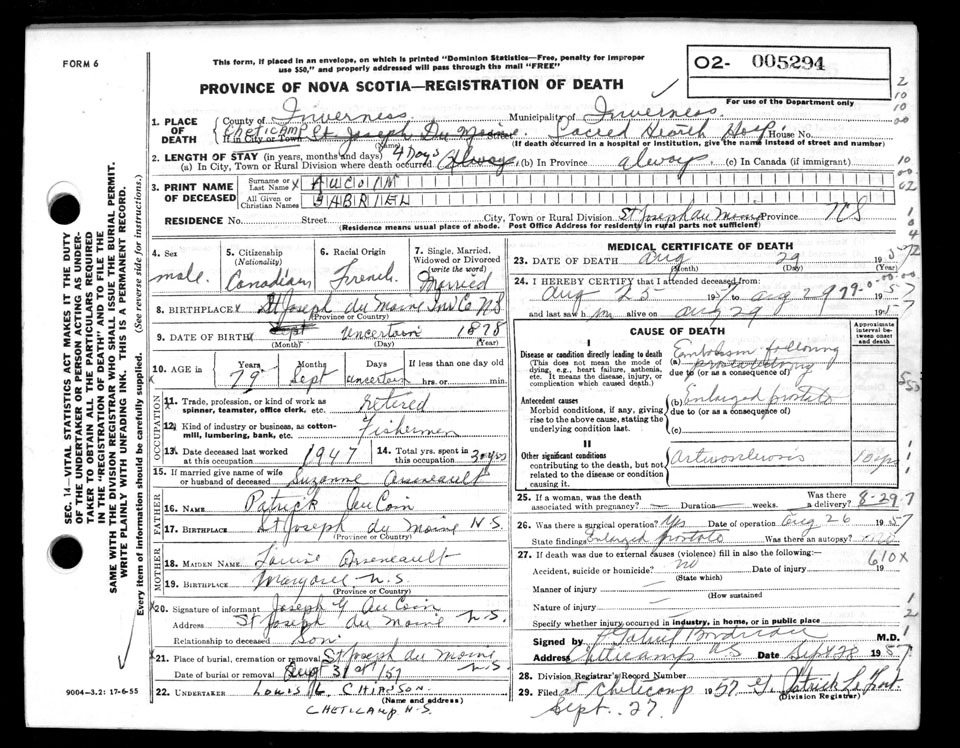 FORM 6
This form, if placed in an envelope, on which is printed "Dominion Statistics—Free, penalty for improper
use $50," and properly addressed will pass through the mail "FREE"
O2- 005294
For use of the Department only
PROVINCE OF NOVA SCOTIA—REGISTRATION OF DEATH
1. PLACE OF DEATH
County of Inverness Municipality of Inverness
CHETICAMP
If in City or Town St Joseph Du Moine Street Sacred Hearth Hosp. House No.
(Name) (If death occurred in a hospital or institution, give the name instead of street and number)
2. LENGTH OF STAY (in years, months and days) 4 Days
(a) In City, Town or Rural Division where death occurred Always (b) in Province always (c) In Canada (if immigrant)
3. PRINT NAME OF DECEASED
Surname or Last Name X AUCOIN
All Given or Christian Names GABRIEL
RESIDENCE No. Street City, Town or Rural Division St Joseph du Moine Province N S
(Residence means usual place of abode. Post Office Address for residents in rural parts not sufficient)
4. Sex male
5. Citizenship (Nationality) Canadian
6. Racial Origin French
7. Single, Married, Widowed or Divorced (write the word) Married
8. BIRTHPLACE St Joseph du Moine Inv Co NS
(Province or Country)
9. DATE OF BIRTH Sept Uncertain 1878
(Month) (Day) (Year)
10. AGE in Years 79 Months Sept Days uncertain If less than one day old hrs. or min.
OCCUPATION
11. Trade, profession or kind of work as spinner, teamster, office clerk, etc. retired
12. Kind of industry or business, as cotton-mill, lumbering, bank, etc. Fishermen
13. Date deceased last worked at this occupation 1947
14. Total yrs. spent in this occupation
15. If married give name of wife or husband of deceased Suzanne Arseneault
FATHER
16. NAME Patrick AuCoin
17. BIRTHPLACE St Joseph du Moine N.S.
(Province or Country)
MOTHER
18. MAIDEN NAME Louise Arseneault
19. BIRTHPLACE Margaree N.S.
(Province or Country)
20. Signature of informant Joseph G AuCoin
Address St Joseph du Moine N.S.
Relationship to deceased Son
21. Place of burial, cremation or removal St Joseph du Moine
Date of burial or removal 31st/57 N.S.
22. UNDERTAKER Louis G. CHIASSON
(Name and address)
CHETICAMP N.S.
MEDICAL CERTIFICATE OF DEATH
23. DATE OF DEATH Aug 29 1957
(Month) (Day) (Year)
24. I HEREBY CERTIFY that I attended deceased from:
Aug 25 1957 to Aug 29 1957
and last saw him alive on Aug 29 1957
CAUSE OF DEATH
Approximate interval between onset and death
I
Disease or condition directly leading to death
(This does not mean the mode of dying, e.g., heart failure, asthenia, etc. It means the disease, injury, or complication which caused death.)
(a) Embolism following
due to (or as a consequence of)
Antecedent causes
Morbid conditions, if any, giving rise to the above cause, stating the underlying condition last.
(b) Enlarged prostate
due to (or as a consequence of)
(c)
II
Other significant conditions
contributing to the death, but not related to the disease or condition causing it.
Arteriosclerosis 10 yrs
25. If a woman, was the death associated with pregnancy? Duration weeks. Was there a delivery?
8-29-7
26. Was there a surgical operation? Yes Date of operation Aug 26 1957
State findings Enlarged prostate Was there an autopsy?
27. If death was due to external causes (violence) fill in also the following:—
610X
Accident, suicide or homicide? no Date of injury 19
(State which)
Manner of injury
(How sustained
Nature of injury
Specify whether injury occurred in industry, in home, or in public place
Signed by Gabriel Boudreau M.D.
Address Cheticamp N S Date Sept 28 1957
28. Division Registrar's Record Number
29. Filed at Cheticamp 1957 G. Patrick LeFort
(Division Registrar)
Sept. 27
SEC. 14—VITAL STATISTICS ACT MAKES IT THE DUTY
OF THE UNDERTAKER OR PERSON ACTING AS UNDER-
TAKER TO OBTAIN ALL THE PARTICULARS REQUIRED
IN THE "REGISTRATION OF DEATH" AND TO FILE THE
SAME WITH THE DIVISION REGISTRAR WHO SHALL ISSUE THE BURIAL PERMIT.
WRITE PLAINLY WITH UNFADING INK. THIS IS A PERMANENT RECORD.
Every item of information should be carefully supplied. (See reverse side for instructions.)
9004—3.2: 17-6-55